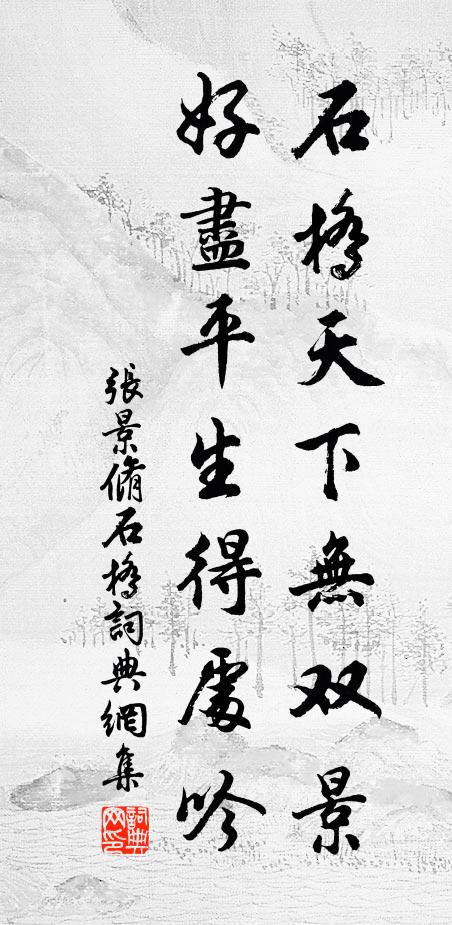 石橋天下無双景
好盡平生得處吟
張景脩石橋詞典網集
詞典
网印